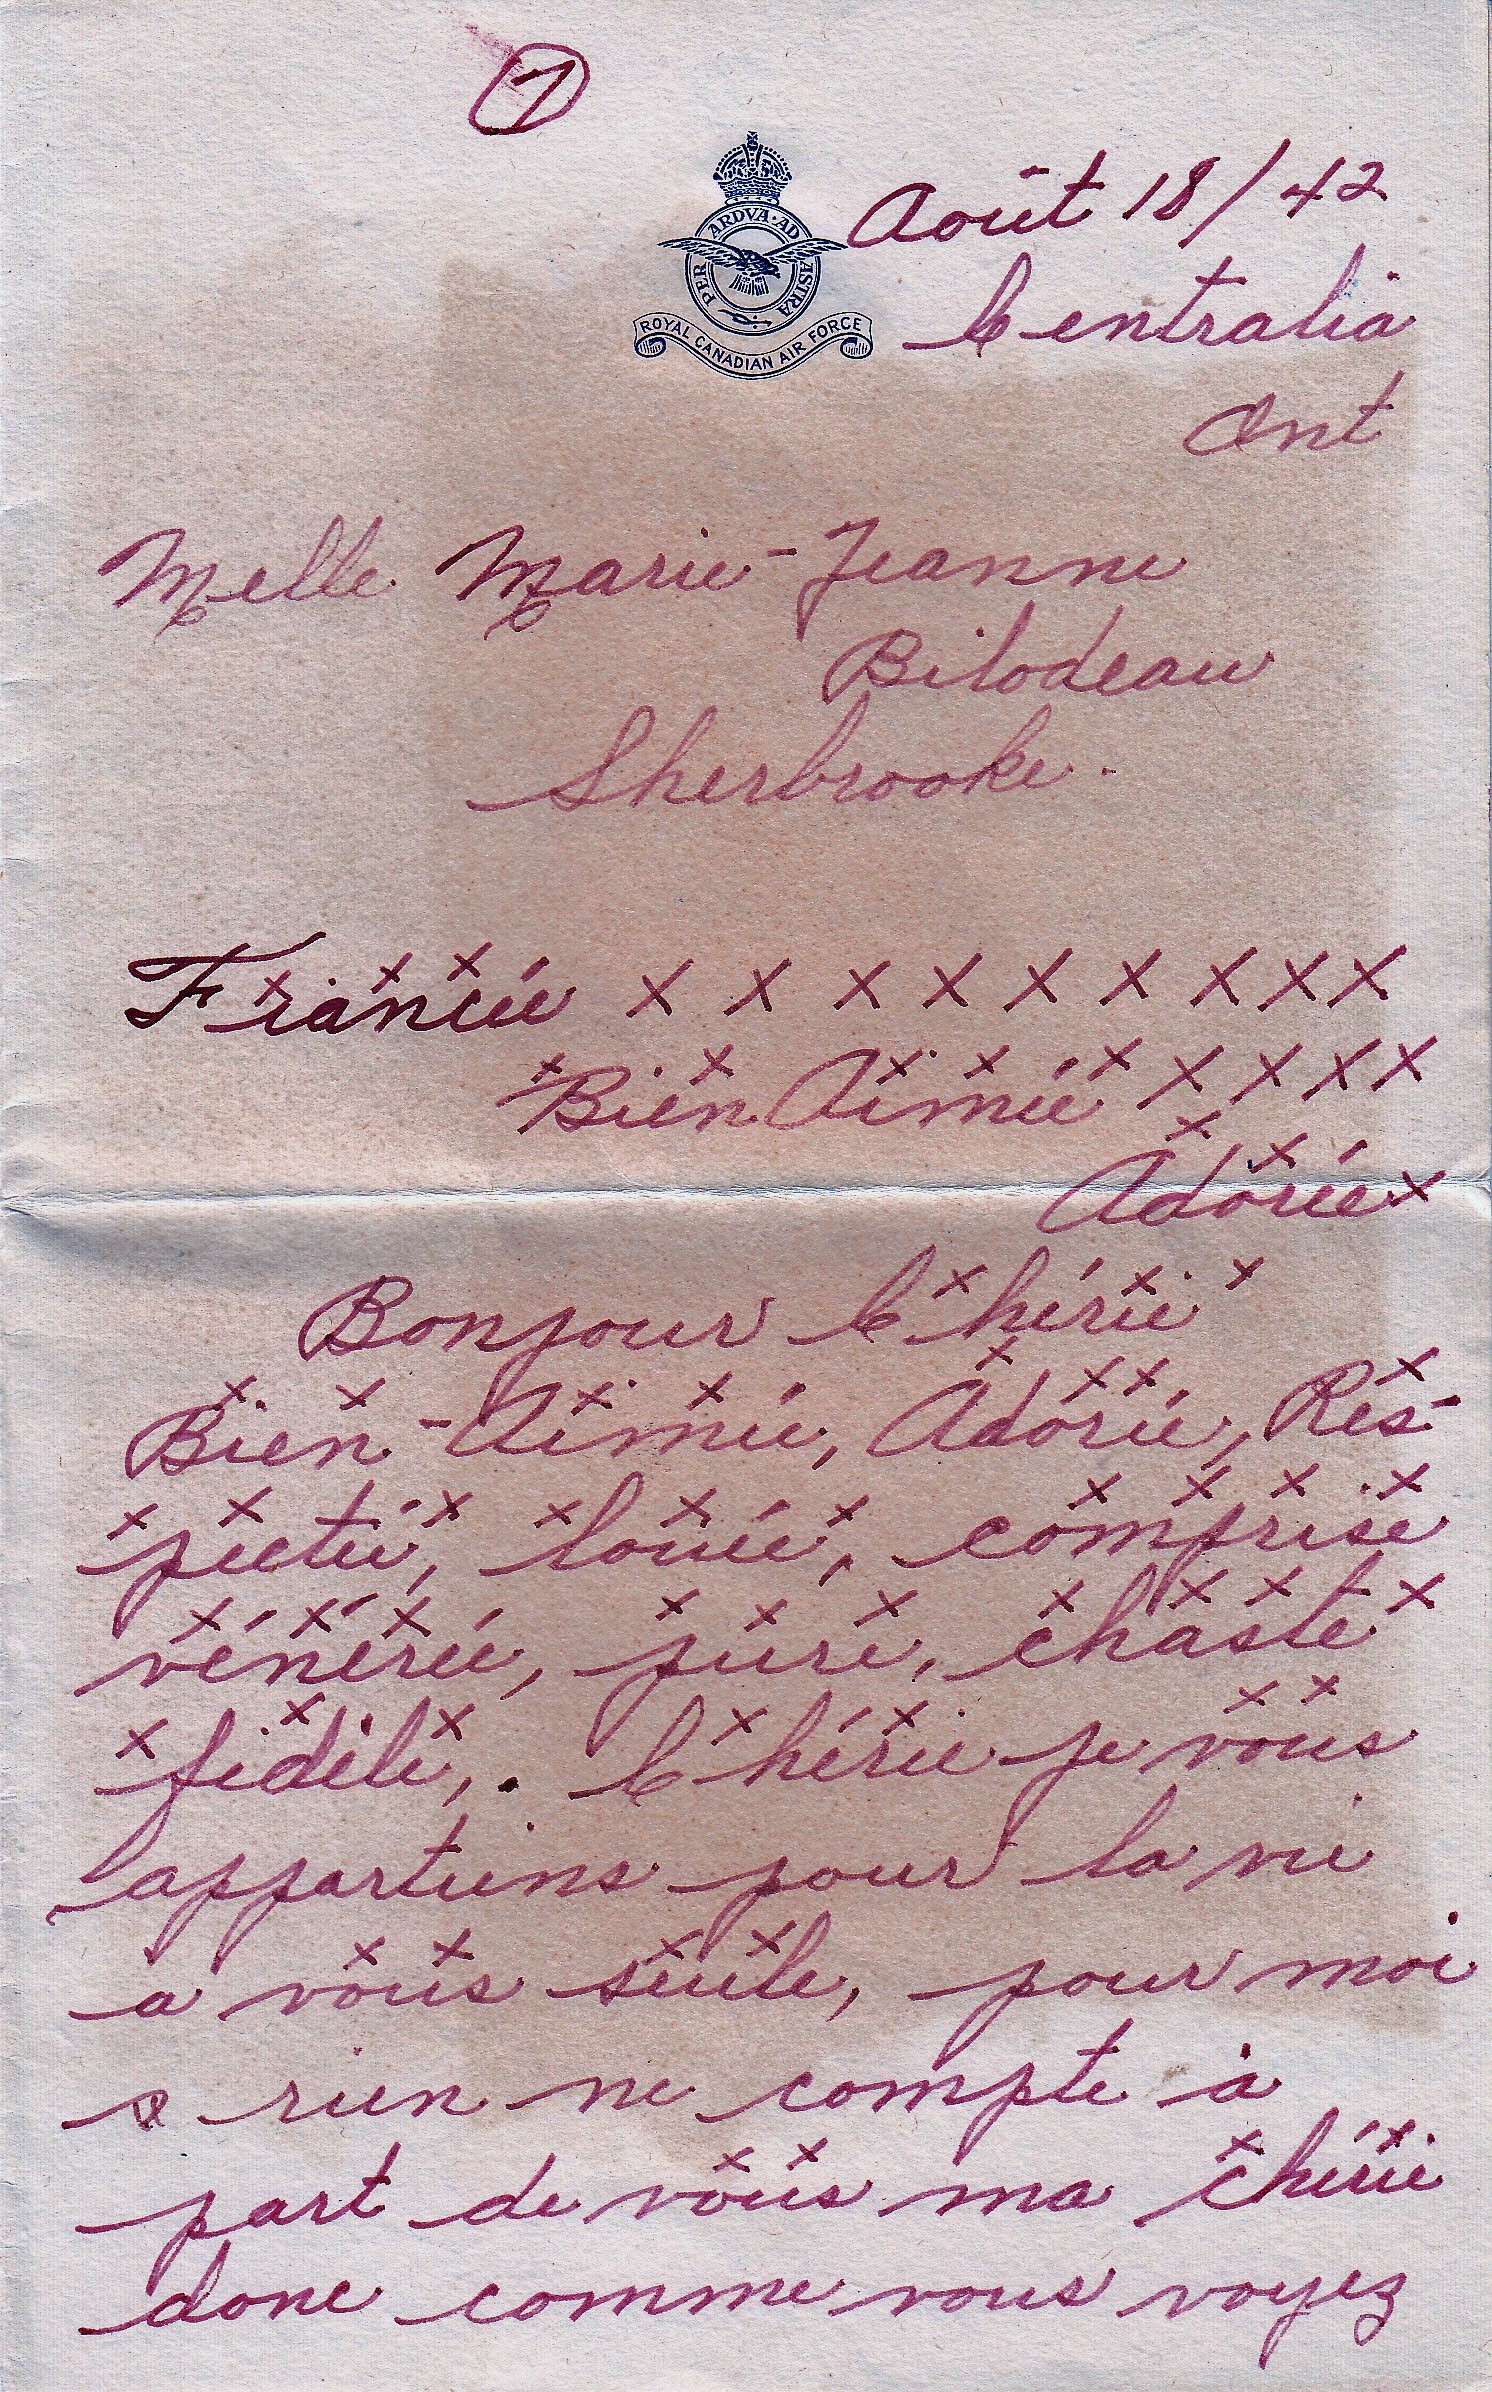 1
PER ARDVA AD ASTRA
ROYAL CANADIAN AIR FORCE
Août 18/42
Centralia
Ont
Melle Marie-Jeanne
Bilodeau
Sherbrooke.
Fiancée x x x x x x x x x
Bien Aimée x x x x
Adorée x
Bonjour Chérie
Bien-Aimée, Adorée, Res-
pectée, louée, comprise
vénérée, pure, chaste
fidèle,. Chérie je vous
appartiens pour la vie
a vous seule, pour moi
rien ne compte à
part de vous ma chérie
donc comme vous voyez